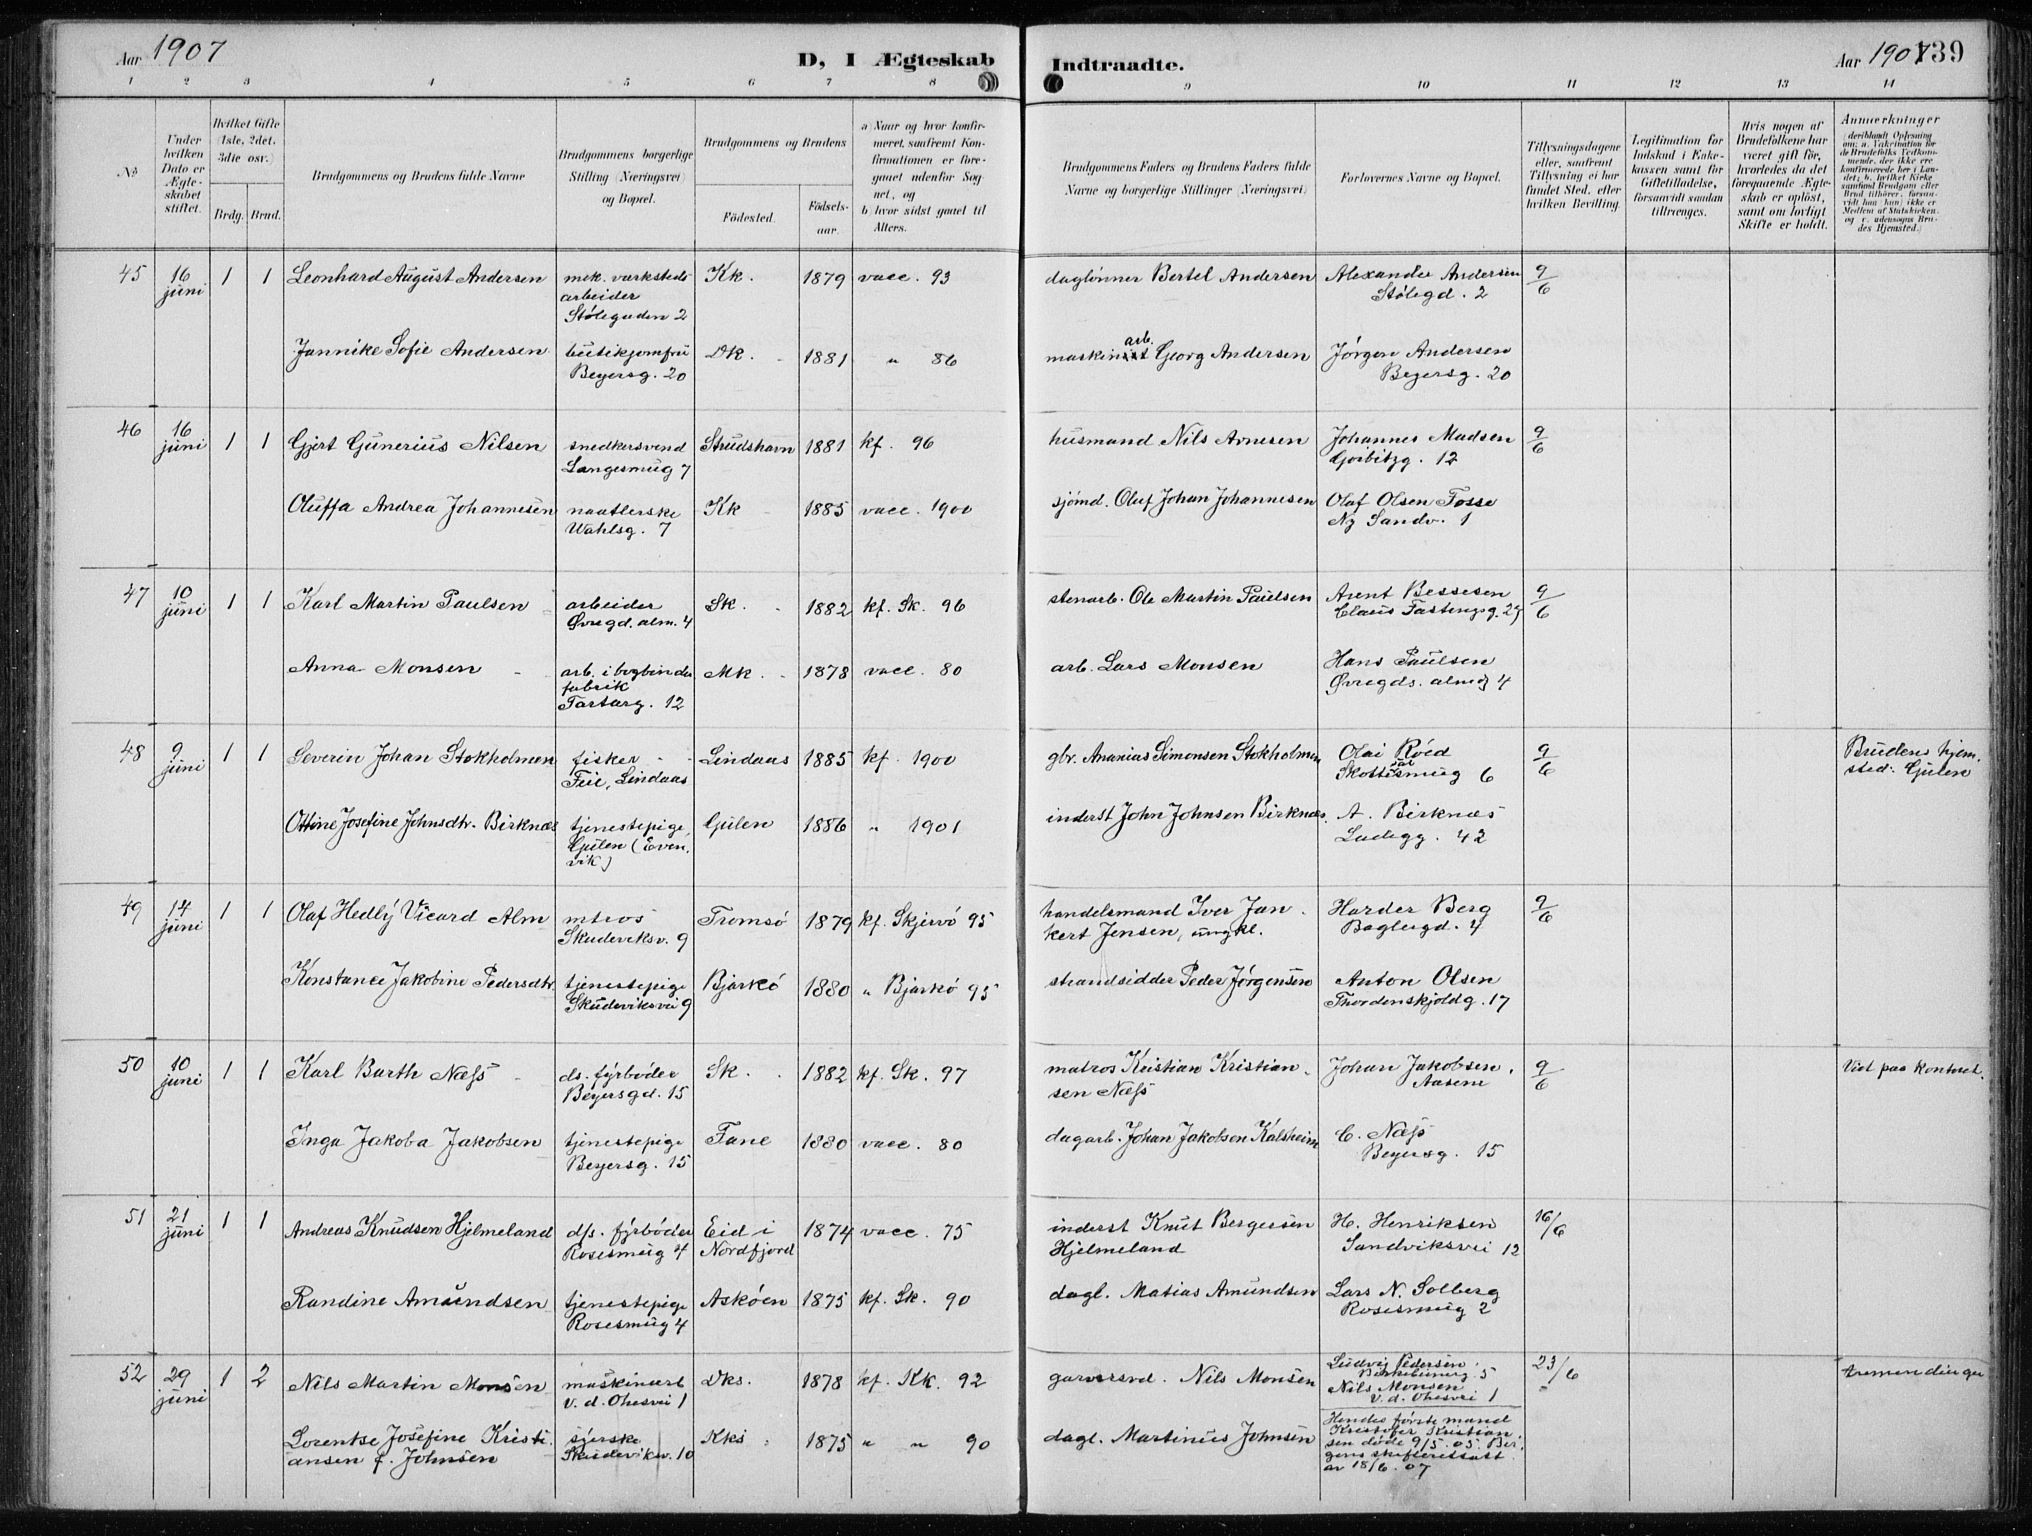 Aar 1907
D, I Ægteskab
Indtraadte.
Aar 1907
139
1 2 3 4 5 6 7 8 9 10 11 12 13 14
No
Under hvilken Dato er Ægteskabet stiftet.
Hvilket Gifte (1ste, 2det, 3die osv.)
Brdg. Brud.
Brudgommens og Brudens fulde Navne
Brudgommens borgerlige Stilling (Næringsvei) og Bopæl.
Brudgommens og Brudens
Födested.
Födsels-aar.
a) Naar og hvor konfirmeret, samfremt Konfirmationen er foregaaet udenfor Sognet, og
b) hvor sidst gaaet til Alters.
Brudgommens Faders og Brudens Faders fulde Navne og borgerlige Stillinger (Næringsvei)
Forlovernes Navne og Bopæl.
Tillysningsdagene eller, samfremt Tillysning ei har fundet Sted, efter hvilken Bevilling.
Legitimation for Indskud i Enkekassen samt for Giftetilladelse, forsaavidt saadan tiltrænges.
Hvis nogen af Brudefolkene har været gift för, hvorledes da det foregaaende Ægteskab er oplöst, samt om lovligt Skifte er holdt.
Anmerkninger
(deriblandt Oplysning om: a. Vakcination for de Brudefolks Vedkommende, der ikke ere konfirmerede her i Landet; b. hvilket Kirkesamfund Brudgom eller Brud tilhörer, forsaavidt han (hun) ikke er Medlem af Statskirken, og c. udensogns Brudes Hjemsted.)
45 16 juni 1 1 Leonhard August Andersen
mek. varksteds arbeider Stølegaden 2
Kk. 1879 vacc. 93
daglønner Bertel Andersen
Alexander Andersen Stølegd. 2
9/6
Jannike Sofie Andersen
butikjomfru Beyersg. 20
Dk. 1881 " 86
maskinarb. Georg Andersen
Jørgen Andersen Beyersg. 20
46 16 juni 1 1 Gjert Gunerius Nilsen
snedkersvend Langesmug 7
Strudshavn 1881 kf. 96
husmand Nils Arnesen
Johannes Madsen Gorbitzg. 12
9/6
Oluffa Andrea Johannesen
naatlerske Wahlsg. 7
Kk 1885 vacc. 1900
sjømd. Oluf Johan Johannesen
Olaf Olsen Fosse Ny Sandv. 1
47 10 juni 1 1 Karl Martin Paulsen
arbeider Øvregd. alm. 4
Sk. 1882 kf. Sk. 96
stenarb. Ole Martin Paulsen
Arent Bessesen Claus Fastingsg. 27
9/6
Anna Monsen
arb. i bogbinder fabrik Tartarg. 12
Mk. 1878 vacc. 80
arb. Lars Monsen
Hans Paulsen Øvregds. almg 4
48 9 juni 1 1 Severin Johan Stokholmen
fisker Feie, Lindaas
Lindaas 1885 kf. 1900
gbr. Ananias Simonsen Stokholmen
Olai Røed Skottesalsmug 6
9/6
Brudens hjemsted: Gulen
Ottine Josefine Johnsdtr. Birknæs
tjenestepige, Gulen (Evenvik)
Gulen 1886 " 1901
inderst John Johnsen Birknæs.
A. Birknæs Ladegg. 42
49 14 juni 1 1 Olaf Hedly Vicard Alm
mtros Skudeviksv. 9
Tromsö 1879 kf. Skjervö 95
handelsmand Iver Jankert Jensen, ungkl.
Harder Berg Baglergd. 4
9/6
Konstance Jakobine Pedersdtr.
tjenestepige Skudeviksvei 9
Bjarkö 1880 " Bjarkö 95
strandsidder Peder Jørgensen
Anton Olsen Thordenskjoldg. 17
50 10 juni 1 1 Karl Barth Næss
ds. fyrbøder Beyersgd. 15
Sk. 1882 kf. Sk. 97
matros Kristian Kristiansen Næss
Johan Jakobsen, Aasene
9/6
Viet paa kontoret.
Inga Jakoba Jakobsen
tjenestepige Beyersg. 15
Fane 1880 vacc. 80
dagarb. Johan Jakobsen Kalsheim
C. Næss Beyersg. 15
51 21 juni 1 1 Andreas Knudsen Hjelmeland
ds. fyrbøder Rosesmug 4
Eid i Nordfjord 1874 vacc. 75
inderst Knut Bergersen Hjelmeland
H. Henriksen Sandviksvei 12
16/6
Randine Amundsen
tjenestepige Rosesmug 4
Askøen 1875 kf. Sk. 90
dagl. Matias Amundsen
Lars N. Solberg Rosesmug 2
52 29 juni 1 2 Nils Martin Monsen
maskinarb v. d. Ohesvei 1
Dks. 1878 kf. Kk. 92
garversvd. Nils Monsen
Ludvig Pedersen, 5
Nils Monsen v. d. Ohesvei 1
23/6
tremendinger
Lorentse Josefine Kristiansen f. Johnsen
syerske Skudeviksv. 10
Kks 1875 " " 90
dagl. Martinus Johnsen
Hendes første mand Kristofer Kristiansen døde 9/5.05. Bergens skifteretsatt. av 18/6.07